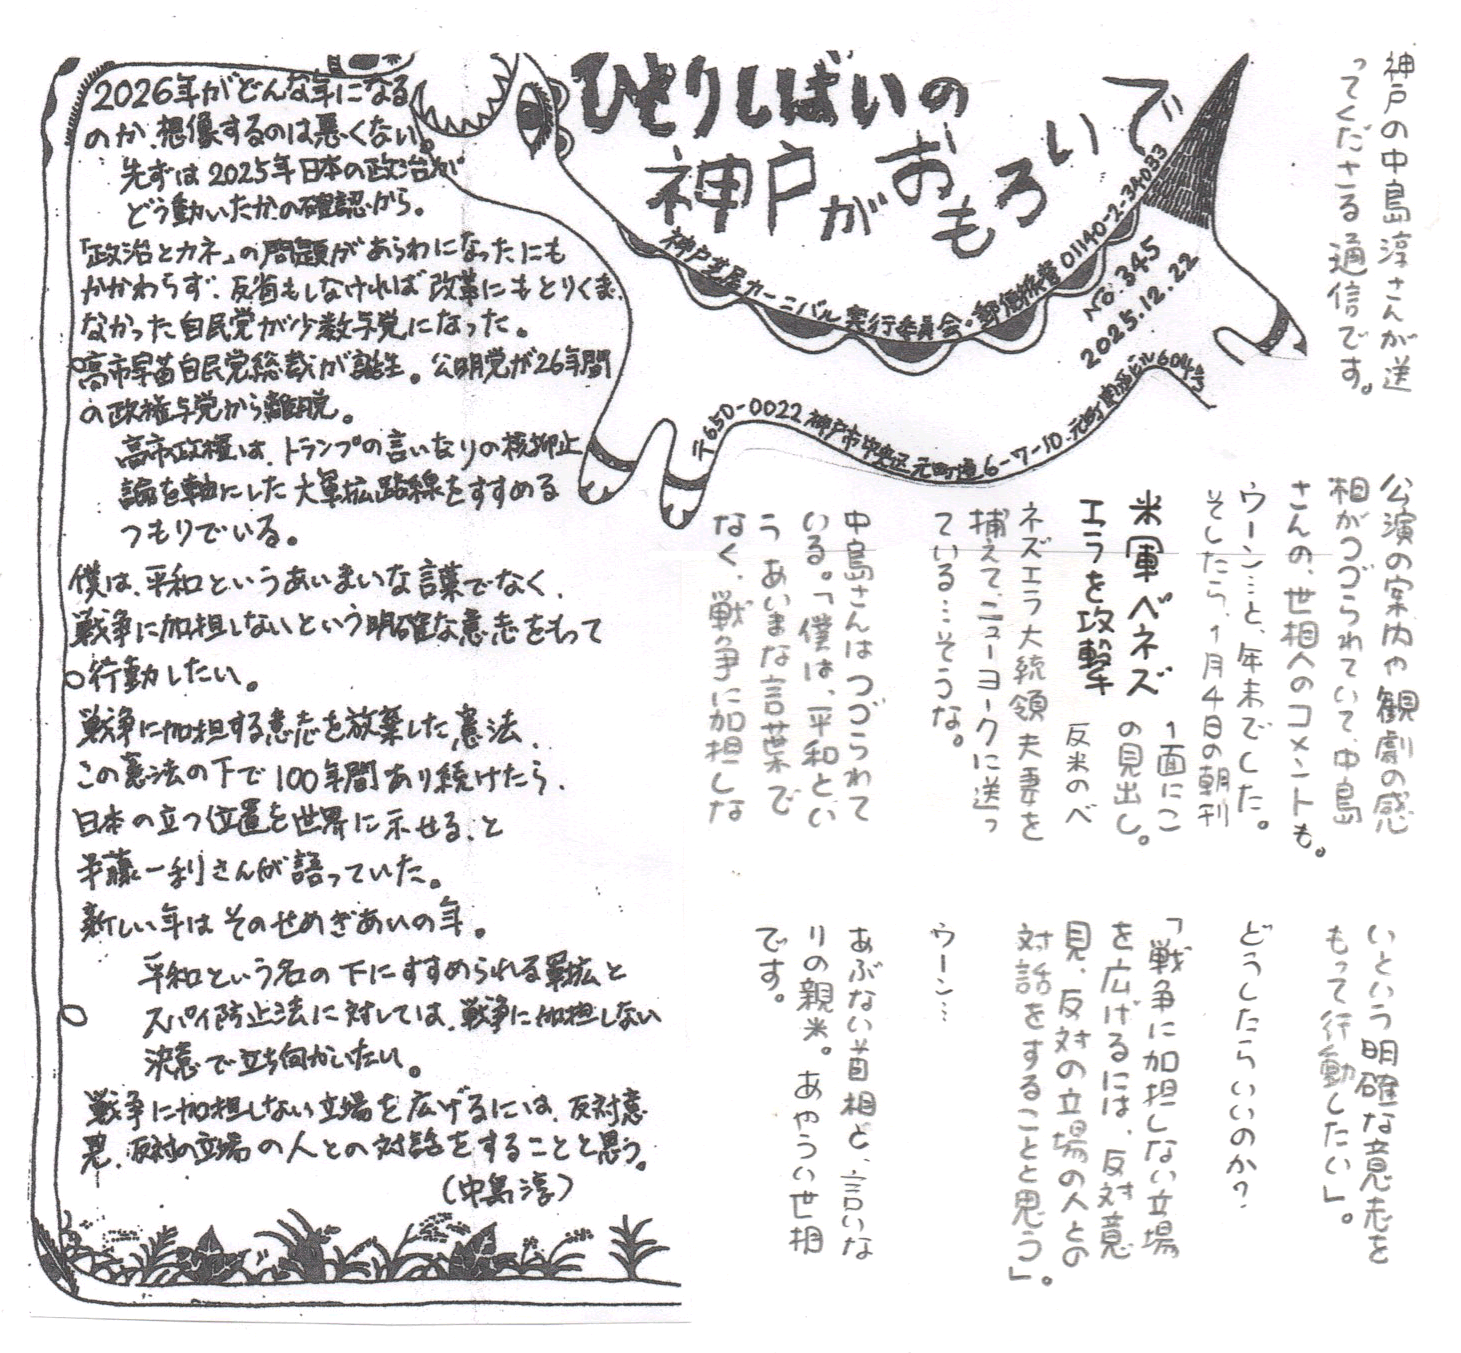 ひとりしばいの
神戸がおもろいで
神戸芝居カーニバル実行委員会・郵便振替 01140-2-34033
No.345
2025.12.22
〒650-0022 神戸市中央区元町通6-7-10 元町関西ビル604号
2026年がどんな年になる
のか、想像するのは悪くない。
先ずは2025年日本の政治が
どう動いたかの確認から。
「政治とカネ」の問題があらわになったにも
かかわらず、反省もしなければ改革にもとりくま
なかった自民党が少数与党になった。
高市早苗自民党総裁が誕生。公明党が26年間
の政権与党から離脱。
高市政権は、トランプの言いなりの核抑止
論を軸にした大軍拡路線をすすめる
つもりでいる。
僕は、平和というあいまいな言葉でなく、
戦争に加担しないという明確な意志をもって
行動したい。
戦争に加担する意志を放棄した憲法、
この憲法の下で100年間あり続けたら、
日本の立つ位置を世界に示せる、と
半藤一利さんが語っていた。
新しい年はそのせめぎあいの年。
平和という名の下にすすめられる軍拡と
スパイ防止法に対しては、戦争に加担しない
決意で立ち向かいたい。
戦争に加担しない立場を広げるには、反対意
見、反対の立場の人との対話をすることと思う。
(中島淳)
神戸の中島淳さんが送
ってくださる通信です。
公演の案内や観劇の感
相がつづられていて、中島
さんの、世相へのコメントも。
ウーン…と、年末でした。
そしたら、1月4日の朝刊
1面にこ
の見出し。
米軍ベネズ
エラを攻撃
反米のベ
ネズエラ大統領夫妻を
捕えて、ニューヨークに送っ
ている…そうな。
中島さんはつづられて
いる。「僕は、平和とい
う あいまな言葉で
なく、戦争に加担しな
いという明確な意志を
もって行動したい」。
どうしたらいいのか?
「戦争に加担しない立場
を広げるには、反対意
見、反対の立場の人との
対話をすることと思う」。
ウーン…
あぶない首相と、言いな
りの親米。あやうい世相
です。